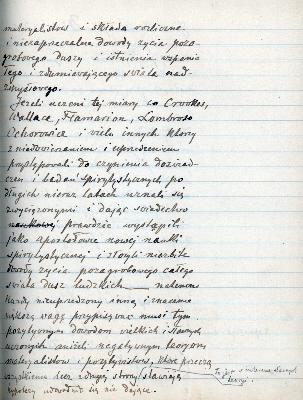 materyalistów i składa rozliczne
i niezaprzeczalne dowody życia poza-
grobowego duszy i istnienia wspania-
łego i zdumiewającego świata nad-
zmysłowego.
Jeżeli uczeni tej miary co Crookes,
Wallace, Flamarion, Lombroso
Ochorowicz i wielu innych którzy
z niedowierzaniem i uprzedzeniem
przystępowali do czynienia doświad-
czeń i badań spirytystycznych po
długich nieraz latach uznali się
zwyciężonymi i dając świadectwo
prawdzie wystąpili
jako apostołowie nowej nauki
spirytystycznej i złożyli niezbite
dowody życia pozagrobowego całego
świata dusz ludzkich — natenczas
każdy nieuprzedzony inną i znacznie
większą wagę przypisywać musi tym
pozytywnym dowodom wielkich i sławnych
uczonych aniżeli negatywnym teoryom
materyalistów i pozytywistów, które przeczą
wszystkiemu lecz z drugiej strony stawiają
hypotezy udowodnić się nie dające.